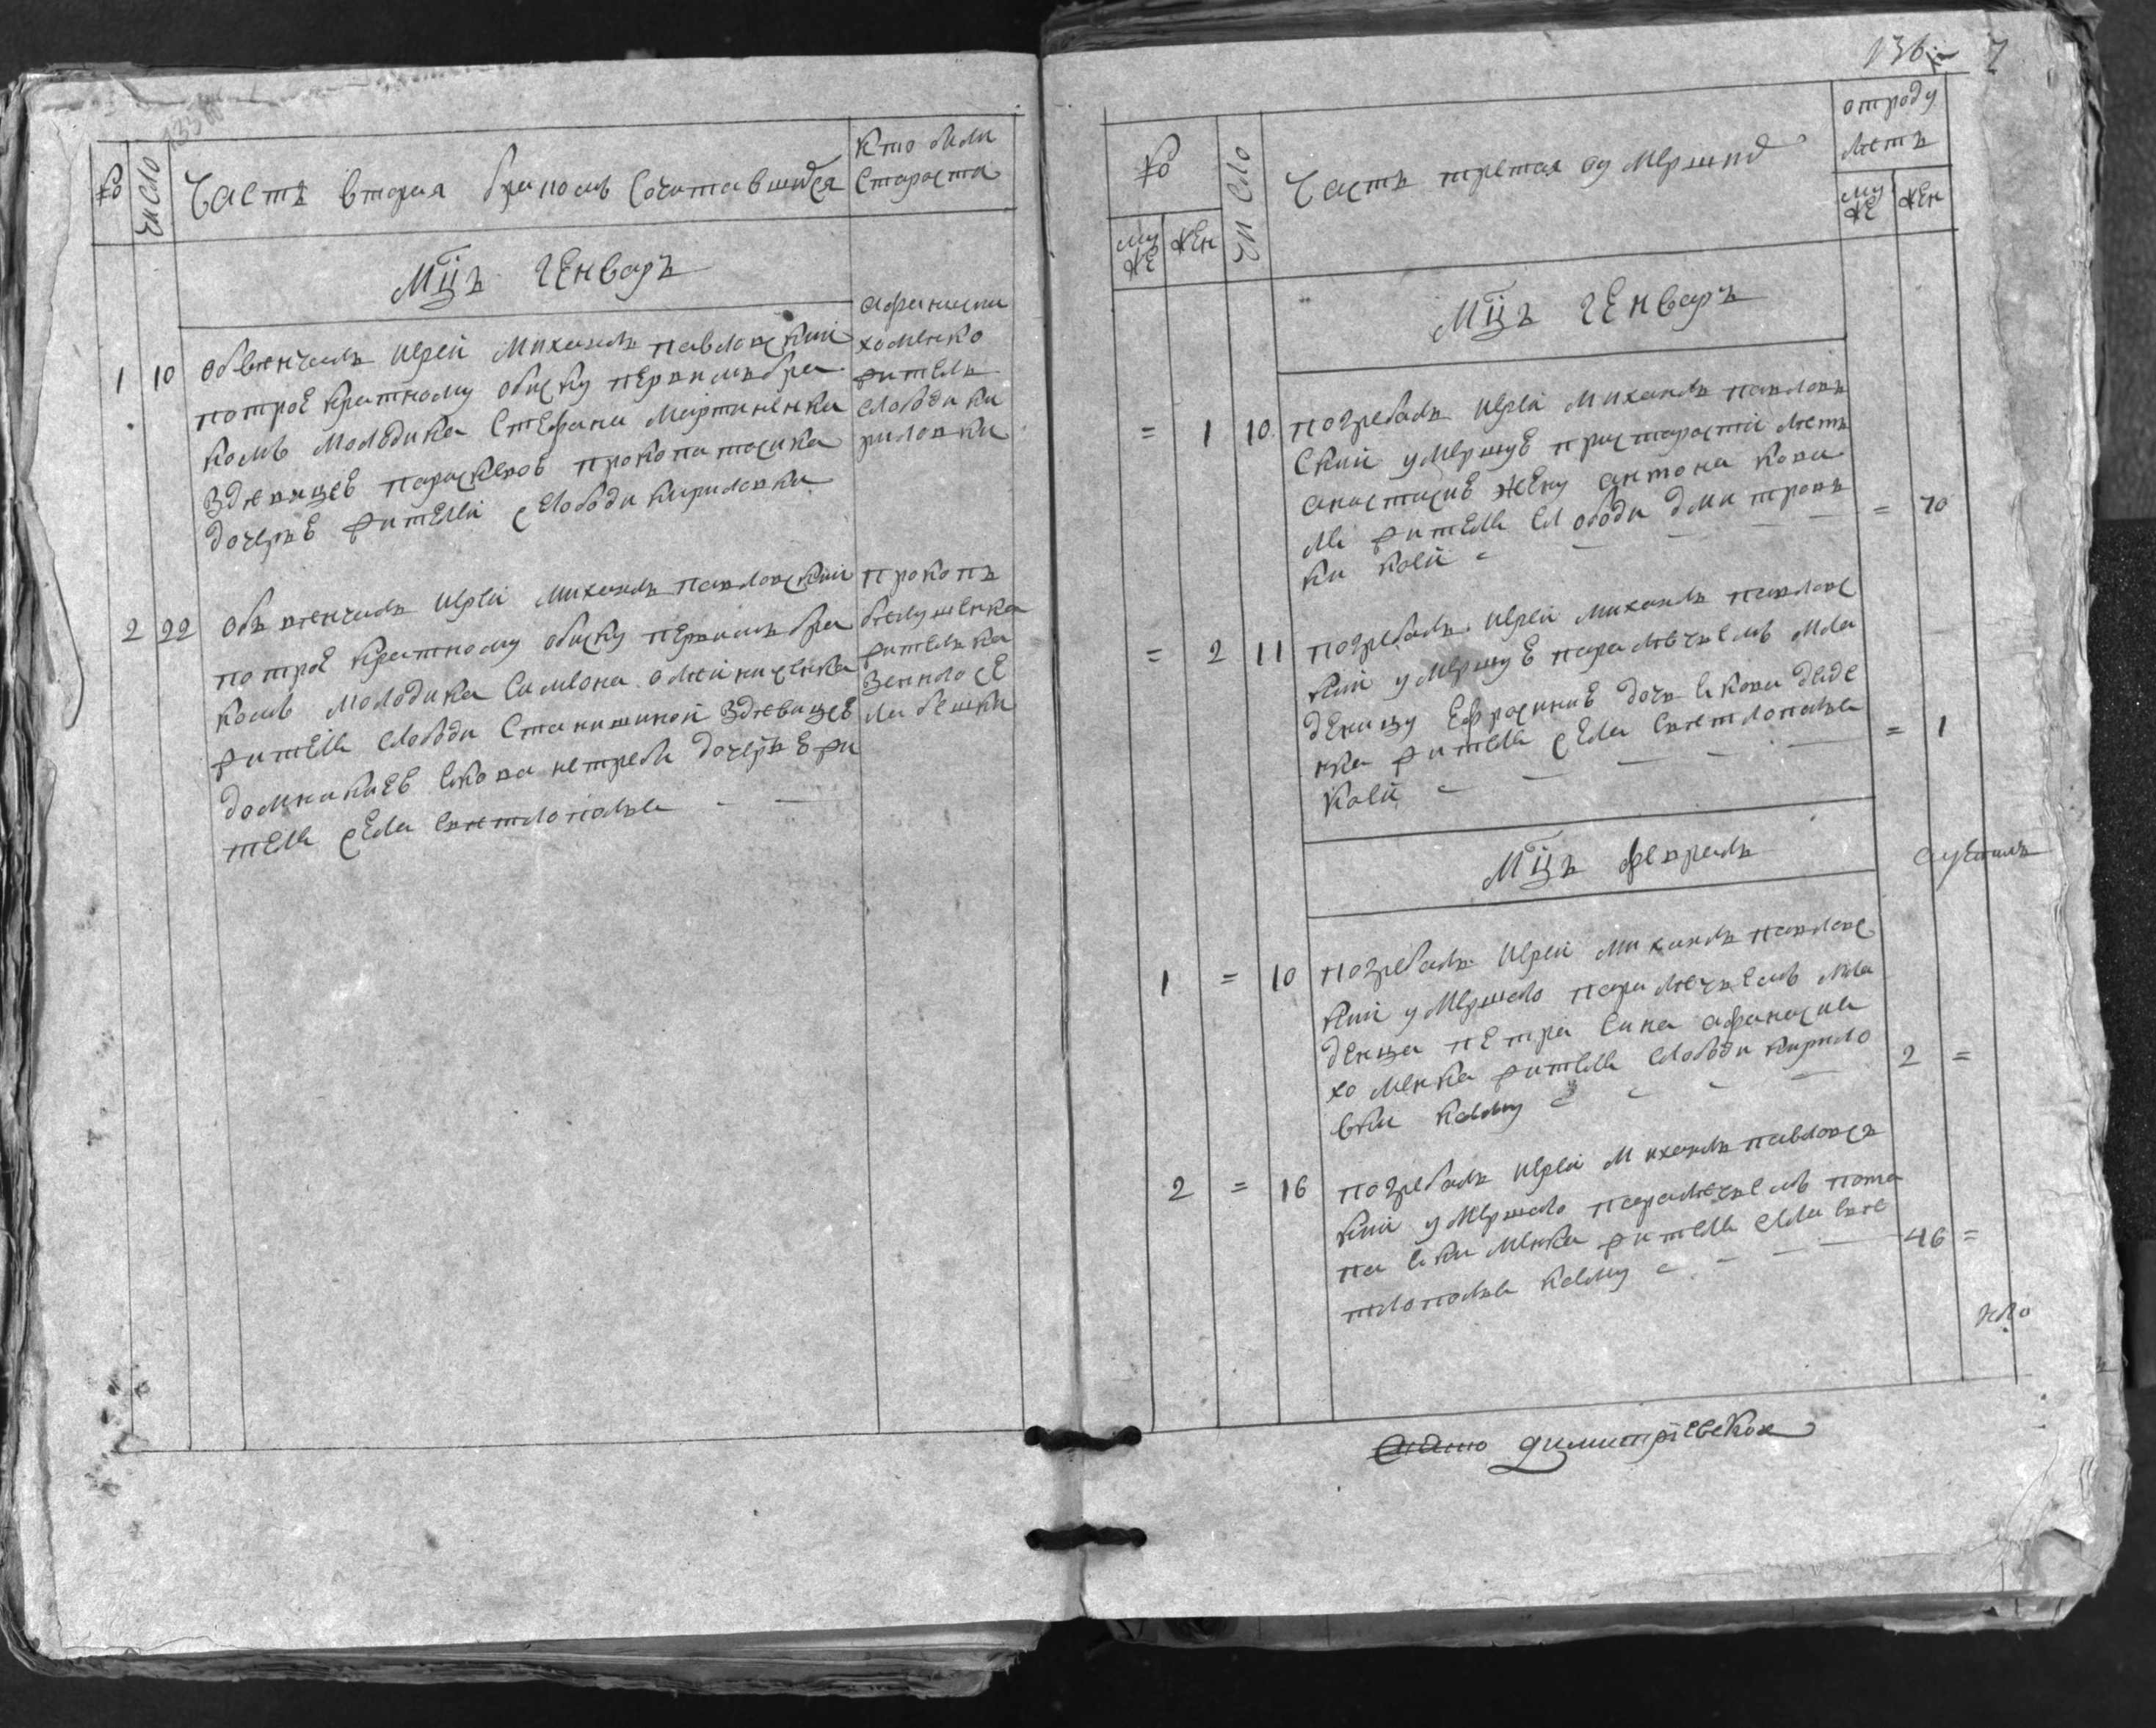 №
Число
Часть вторая бракомъ Сочитавшихся
Кто были
Староста
Мцъ Генварь
1 10
Обвенчалъ Иерей Михаилъ павловский
потрое кратному обиску первимъ бра
комъ молодика Стефана Мартиненка
Здевицею параскевою прокопа
дочерю жителя Слободи кириловки
афанасий
хоменко
житель
слободи ки
риловки
2 22
Объвенчалъ Иерей михаилъ павловский
потрое кратному обиску первимъ бра
комъ молодика Симеона олейниченка
жителя слободи Станишиной Здевицею
домникиею Якова нетреби дочерю жи
теля села светлополья
прокопъ
житель ка
136 7
№
муже жен
Число
Часть третая оумершихъ
отроду
летъ
муже жен
Мцъ Генварь
= 1 10
погребалъ Иерей михаилъ павловъ
ский умершуе пристарости летъ
анастасию жену антона кова
ля жителя слободи дмитровъ
ки коей = 70
= 2 11
погребалъ Иерей михаилъ павловс
кий умершуе параличемъ мла
деницу Ефросинию дочь якова
нка жителя села светлополья
коей = 1
Мцъ февраль
1 = 10
погребалъ Иерей михаилъ павловс
кий умершаго параличемъ мла
денца петра сина афанасия
хоменка жителя слободи кирило
вки коему 2 =
2 = 16
погребалъ Иерей михаилъ павловсъ
кий умершаго параличемъ пота
па якименка жителя села све
тлополья коему 46 =
димитріевскоя